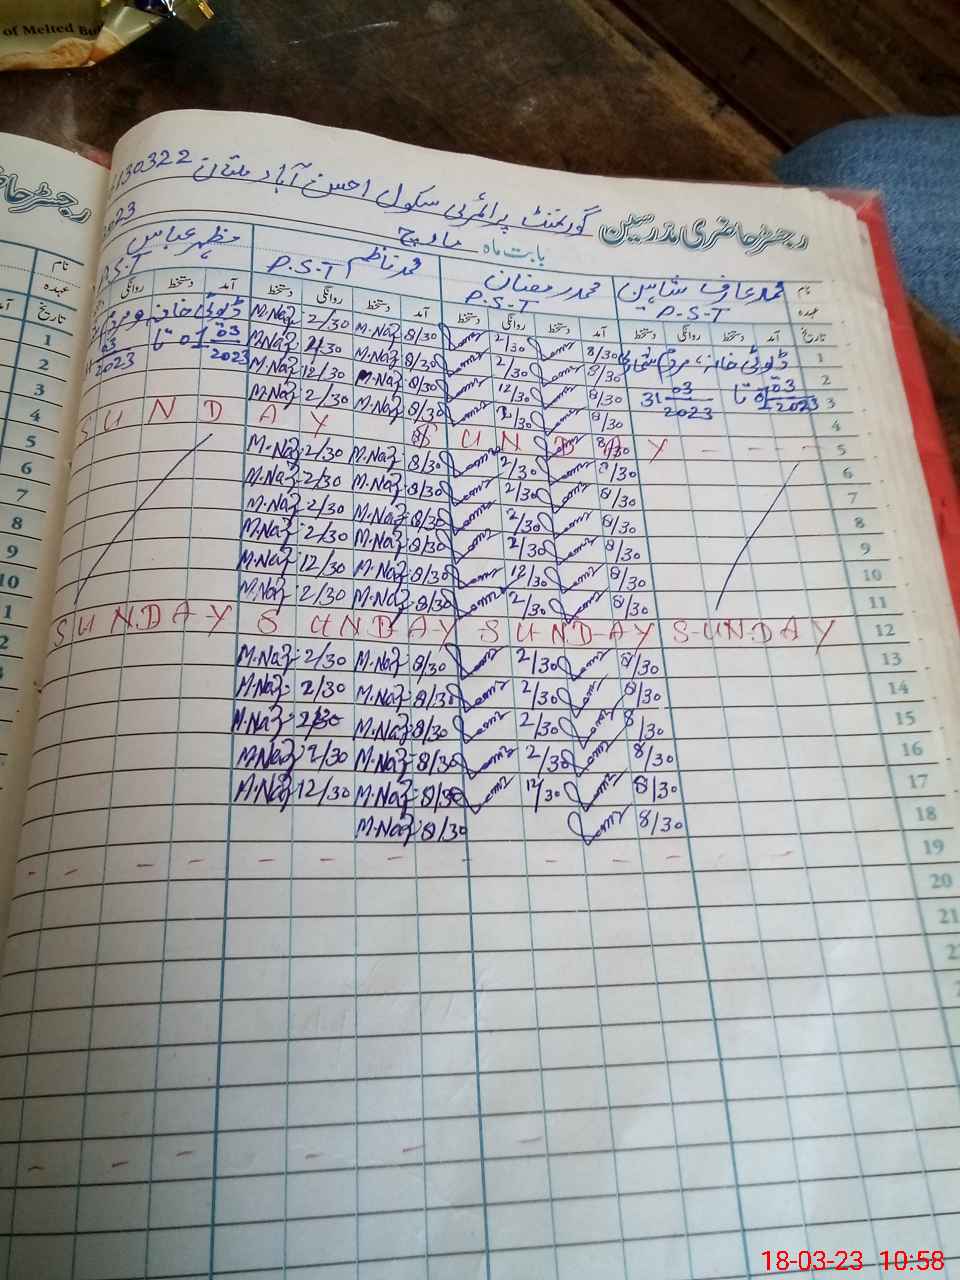 of Melted Bu
رجسٹر حاضری مدرسین گورنمنٹ پرائمری سکول احسن آباد ملتان 130322
بابت ماہ مارچ 2023
نام محمد عارف شاہین محمد رمضان محمد ناظم مظہر عباس
عہدہ P.S.T P.S.T P.S.T P.S.T
تاریخ آمد دستخط روانگی دستخط آمد دستخط روانگی دستخط آمد دستخط روانگی دستخط آمد دستخط روانگی
1 ڈیوٹی خانہ و مردم شماری 8/30 2/30 8/30 M.Naz 2/30 M.Naz ڈیوٹی خانہ و مردم
2 01 03 2023 تا 31 03 2023 8/30 2/30 8/30 M.Naz 2/30 M.Naz 01 03 2023 تا 03 2023
3 8/30 12/30 8/30 M.Naz 12/30 M.Naz
4 8/30 2/30 8/30 M.Naz 2/30 M.Naz
5 SUNDAY SUNDAY
6 8/30 2/30 8/30 M.Naz 2/30 M.Naz
7 8/30 2/30 8/30 M.Naz 2/30 M.Naz
8 8/30 2/30 8/30 M.Naz 2/30 M.Naz
9 8/30 2/30 8/30 M.Naz 2/30 M.Naz
10 8/30 12/30 8/30 M.Naz 12/30 M.Naz
11 8/30 2/30 8/30 M.Naz 2/30 M.Naz
12 SUNDAY SUNDAY SUNDAY SUNDAY
13 8/30 2/30 8/30 M.Naz 2/30 M.Naz
14 8/30 2/30 8/30 M.Naz 2/30 M.Naz
15 8/30 2/30 8/30 M.Naz 2/30 M.Naz
16 8/30 2/30 8/30 M.Naz 2/30 M.Naz
17 8/30 12/30 8/30 M.Naz 12/30 M.Naz
18 8/30 8/30 M.Naz
19
20
21
18-03-23 10:58